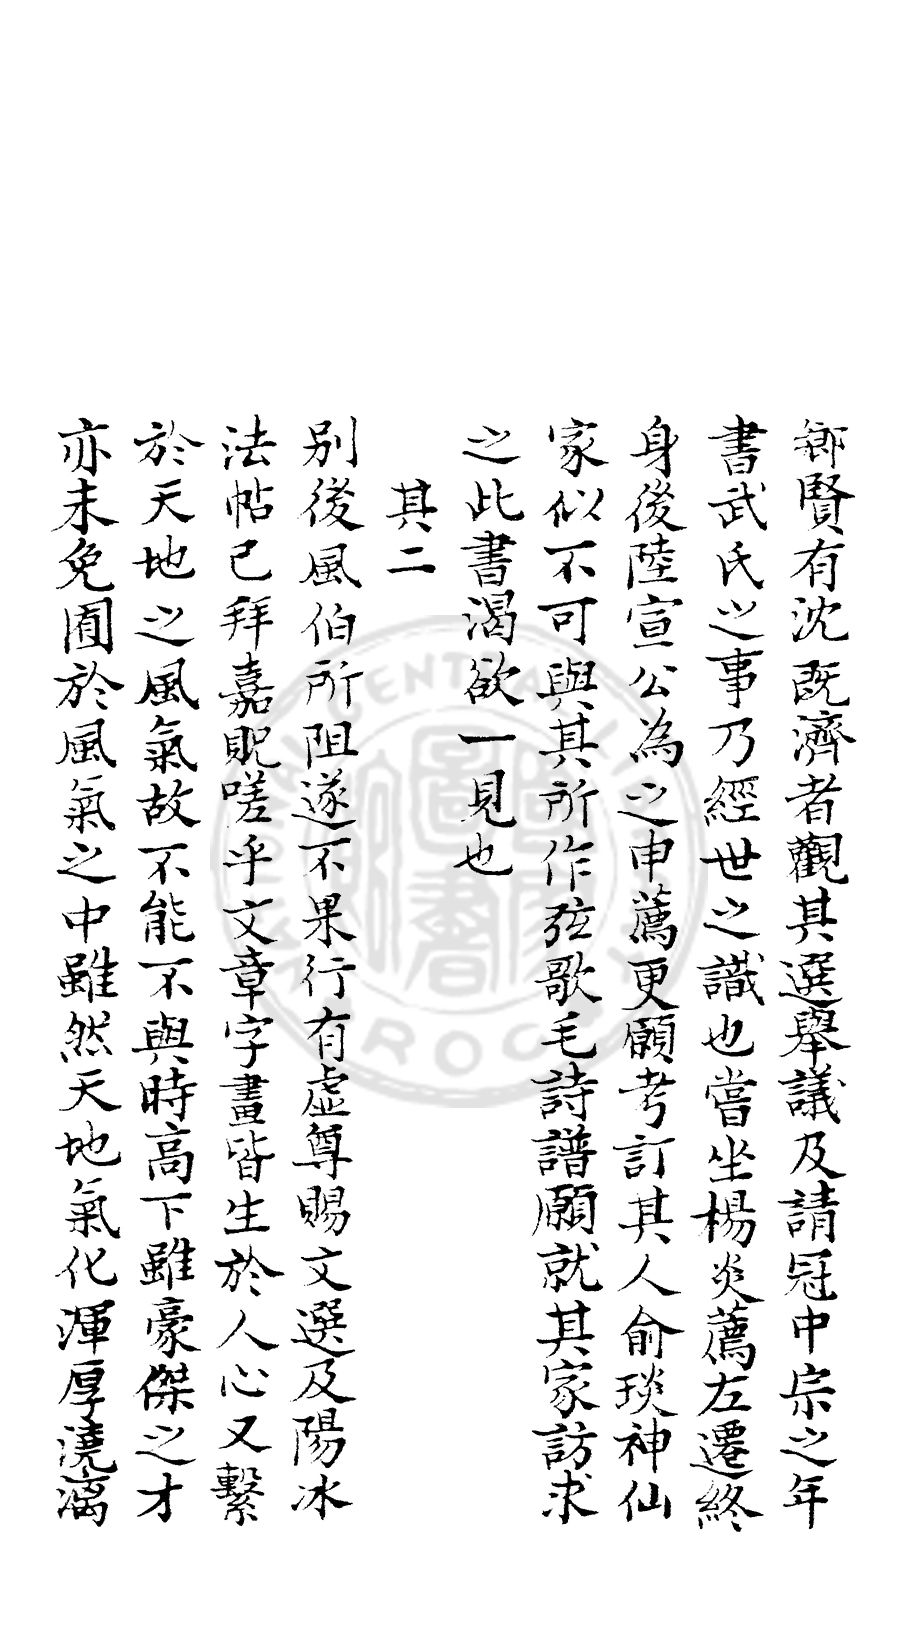 鄉賢有沈既濟者觀其選舉議及請冠中宗之年
書武氏之事乃經世之識也嘗坐楊炎薦左遷終
身後陸宣公為之申薦更願考訂其人俞琰神仙
家似不可與其所作弦歌毛詩譜願就其家訪求
之此書渴欲一見也
其二
别後風伯所阻遂不果行有虛尊賜文選及陽冰
法帖已拜嘉貺嗟乎文章字畫皆生於人心又繫
於天地之風氣故不能不與時高下雖豪傑之才
亦未免囿於風氣之中雖然天地氣化渾厚澆漓